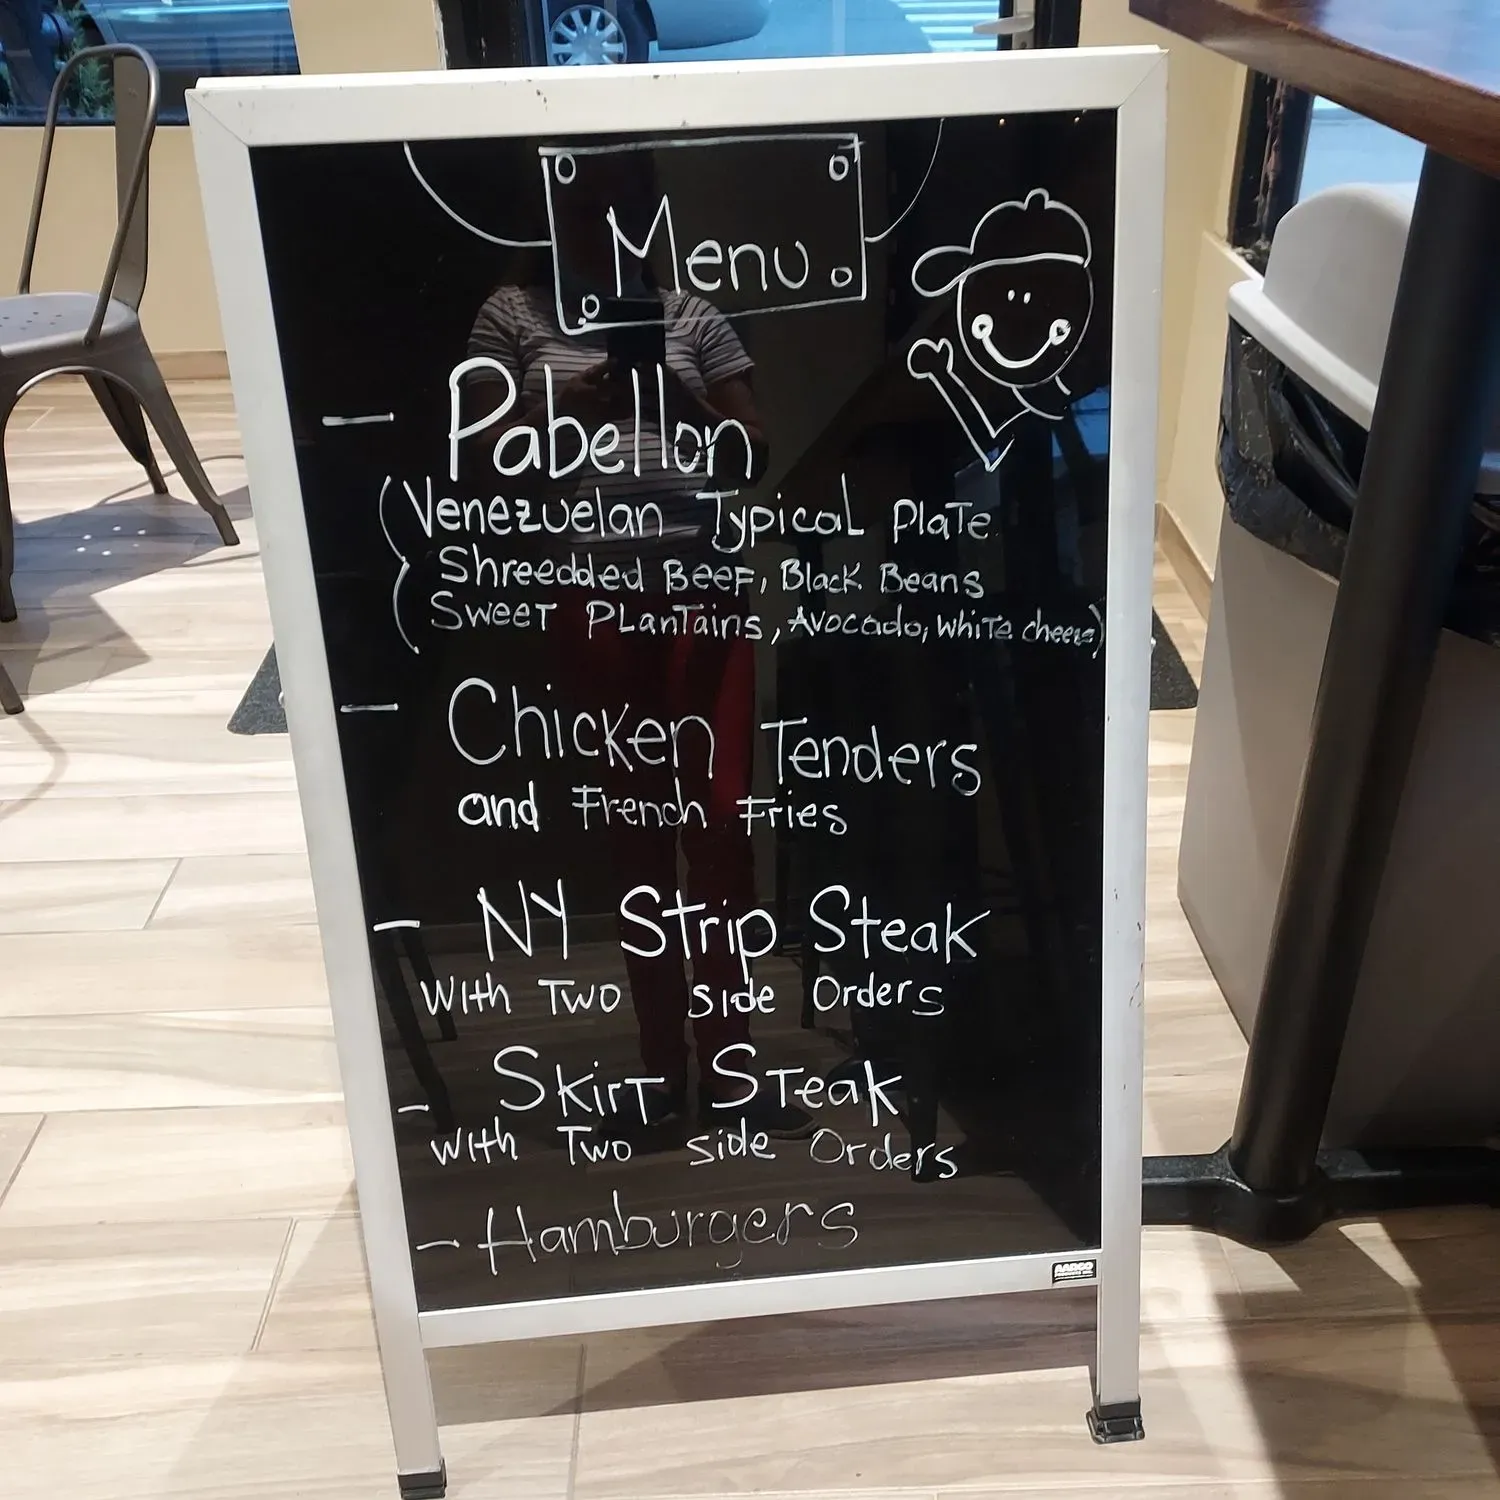 Menu
- Pabellon
(Venezuelan Typical Plate
Shreedded Beef, Black Beans
Sweet Plantains, Avocado, white cheese)
- Chicken Tenders
and French Fries
- NY Strip Steak
With Two side Orders
- Skirt Steak
with Two side Orders
- Hamburgers
AARCO
PRODUCTS INC.